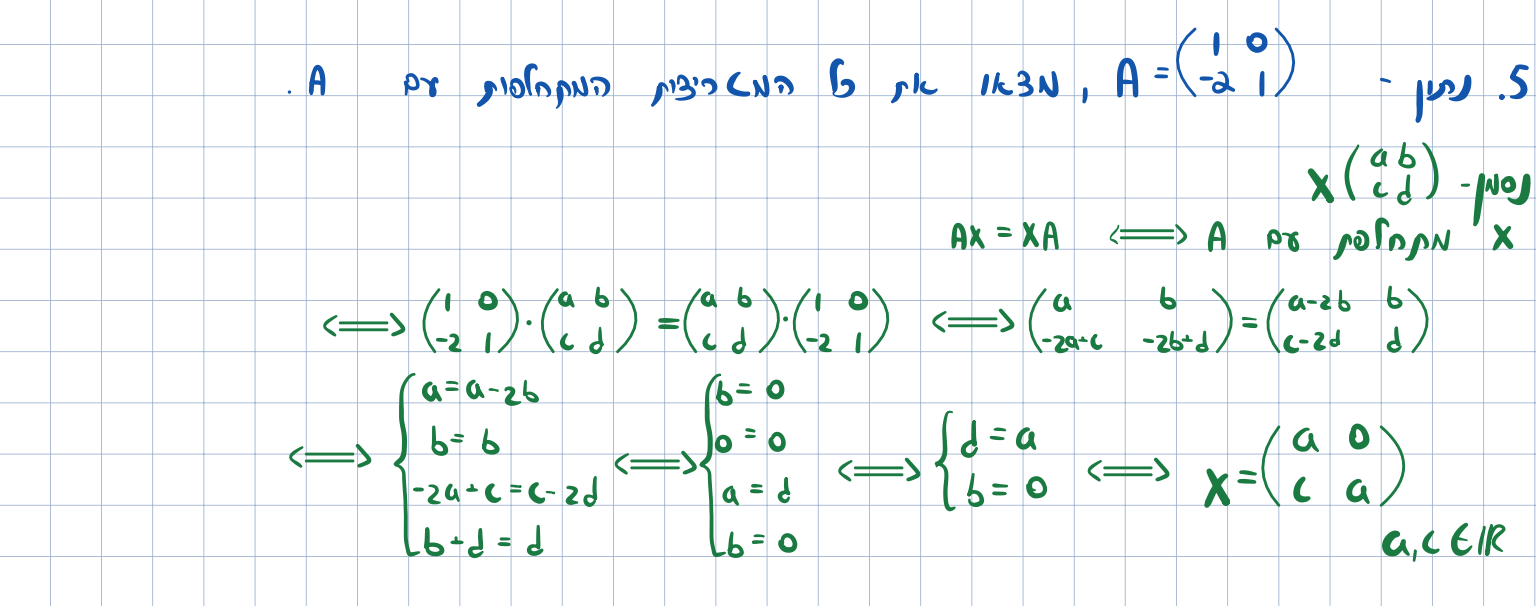 5. נתון - A = \begin{pmatrix} 1 & 0 \\ -2 & 1 \end{pmatrix} , מצאו את כל המטריצות המתחלפות עם A .
נסמן - X \begin{pmatrix} a & b \\ c & d \end{pmatrix}
X מתחלפת עם A ⟺ AX = XA
⟺ \begin{pmatrix} 1 & 0 \\ -2 & 1 \end{pmatrix} \cdot \begin{pmatrix} a & b \\ c & d \end{pmatrix} = \begin{pmatrix} a & b \\ c & d \end{pmatrix} \cdot \begin{pmatrix} 1 & 0 \\ -2 & 1 \end{pmatrix} ⟺ \begin{pmatrix} a & b \\ -2a+c & -2b+d \end{pmatrix} = \begin{pmatrix} a-2b & b \\ c-2d & d \end{pmatrix}
⟺ \begin{cases} a=a-2b \\ b=b \\ -2a+c=c-2d \\ b+d=d \end{cases} ⟺ \begin{cases} b=0 \\ 0=0 \\ a=d \\ b=0 \end{cases} ⟺ \begin{cases} d=a \\ b=0 \end{cases} ⟺ X = \begin{pmatrix} a & 0 \\ c & a \end{pmatrix}
a,c ∈ ℝ